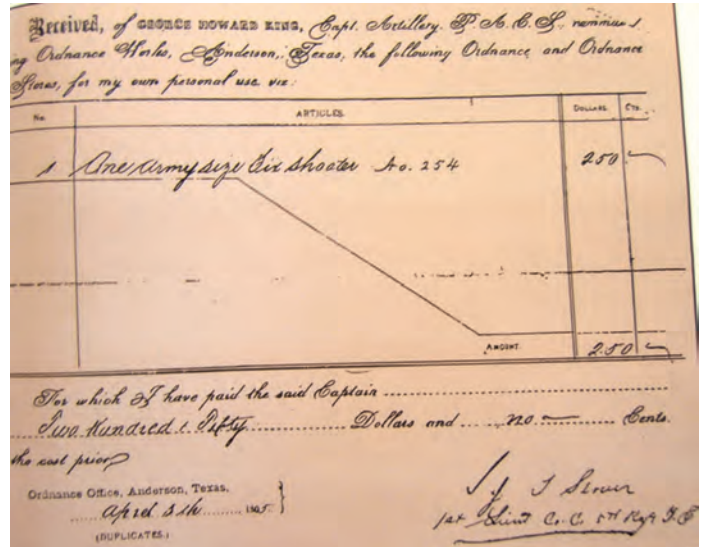 Received, of GEORGE HOWARD KING, Capt. Artillery. P. A. C. S.
ng Ordnance Works, Anderson, Texas, the following Ordnance and Ordnance
Stores, for my own personal use viz:
No. ARTICLES. DOLLARS. CTS.
1 One Army size Six shooter No. 254 250
AMOUNT 250
For which I have paid the said Captain
Two Hundred & Fifty Dollars and no Cents.
the cost price
Ordnance Office, Anderson, Texas,
April 5th 1865
(DUPLICATES.)
1st Lieut Co. C. 5th Regt